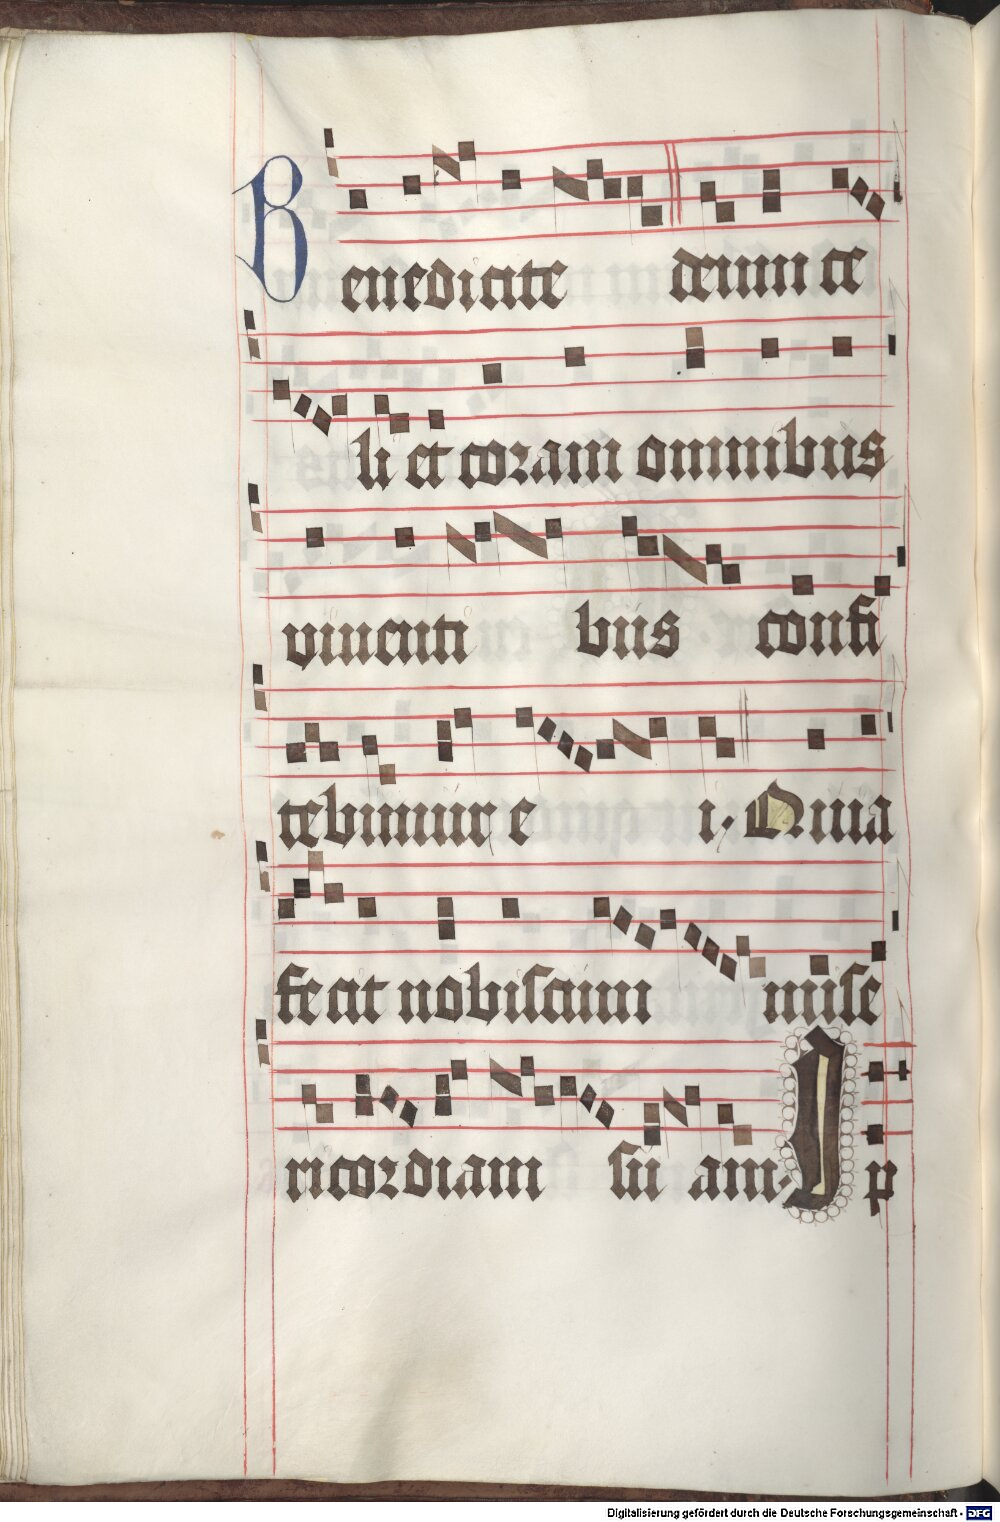 Benedicite deum ce
li et coram omnibus
viventi bus confi
tebimur e i. Quia
fecit nobiscum mise
ricordiam su am. Ip
Digitalisierung gefördert durch die Deutsche Forschungsgemeinschaft - DFG